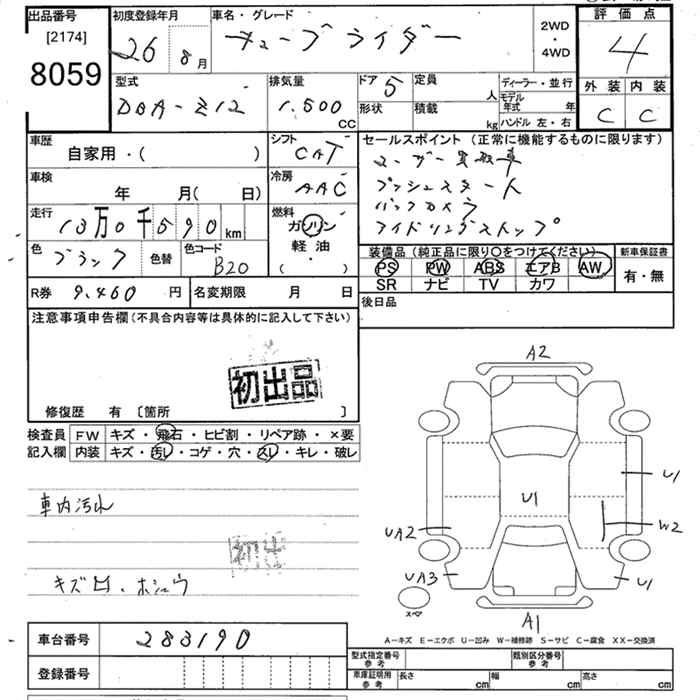 出品番号
[2174]
8059
初度登録年月
26 8月
車名・グレード
キューブライダー
2WD
・
4WD
評価点
4
外装 内装
C C
型式
DBA-Z12
排気量
1.500
CC
ドア 5
形状
定員 人
積載 kg
ディーラー・並行
モデル
年式 年
ハンドル 左・右
車歴
自家用・( )
シフト
CAT
セールスポイント (正常に機能するものに限ります)
ユーザー買取車
プッシュスタート
バックカメラ
アイドリングストップ
車検
年 月( 日)
冷房
AAC
走行
13万0千590km
燃料
ガソリン
軽油・
(・ )
色 ブラック
色替
色コード
B20
装備品 (純正品に限り〇をつけてください)
PS PW ABS エアB AW
SR ナビ TV カワ
新車保証書
有・無
R券 9.460 円
名変期限 月 日
後日品
注意事項申告欄 (不具合内容等は具体的に記入して下さい)
初出品
修復歴 有 [箇所 ]
検査員 FW キズ・飛石・ヒビ割・リペア跡・×要
記入欄 内装 キズ・汚レ・コゲ・穴・スレ・キレ・破レ
車内汚れ
初出
キズ凹・ホシュウ
A2
U1
U1
W2
UA2
UA3
U1
スペア
A1
A-キズ E-エクボ U-凹み W-補修跡 S-サビ C-腐食 XX-交換済
車台番号 283190
登録番号
型式指定番号
参考
類別区分番号
参考
車庫証明用
参考
長さ cm
幅 cm
高さ cm